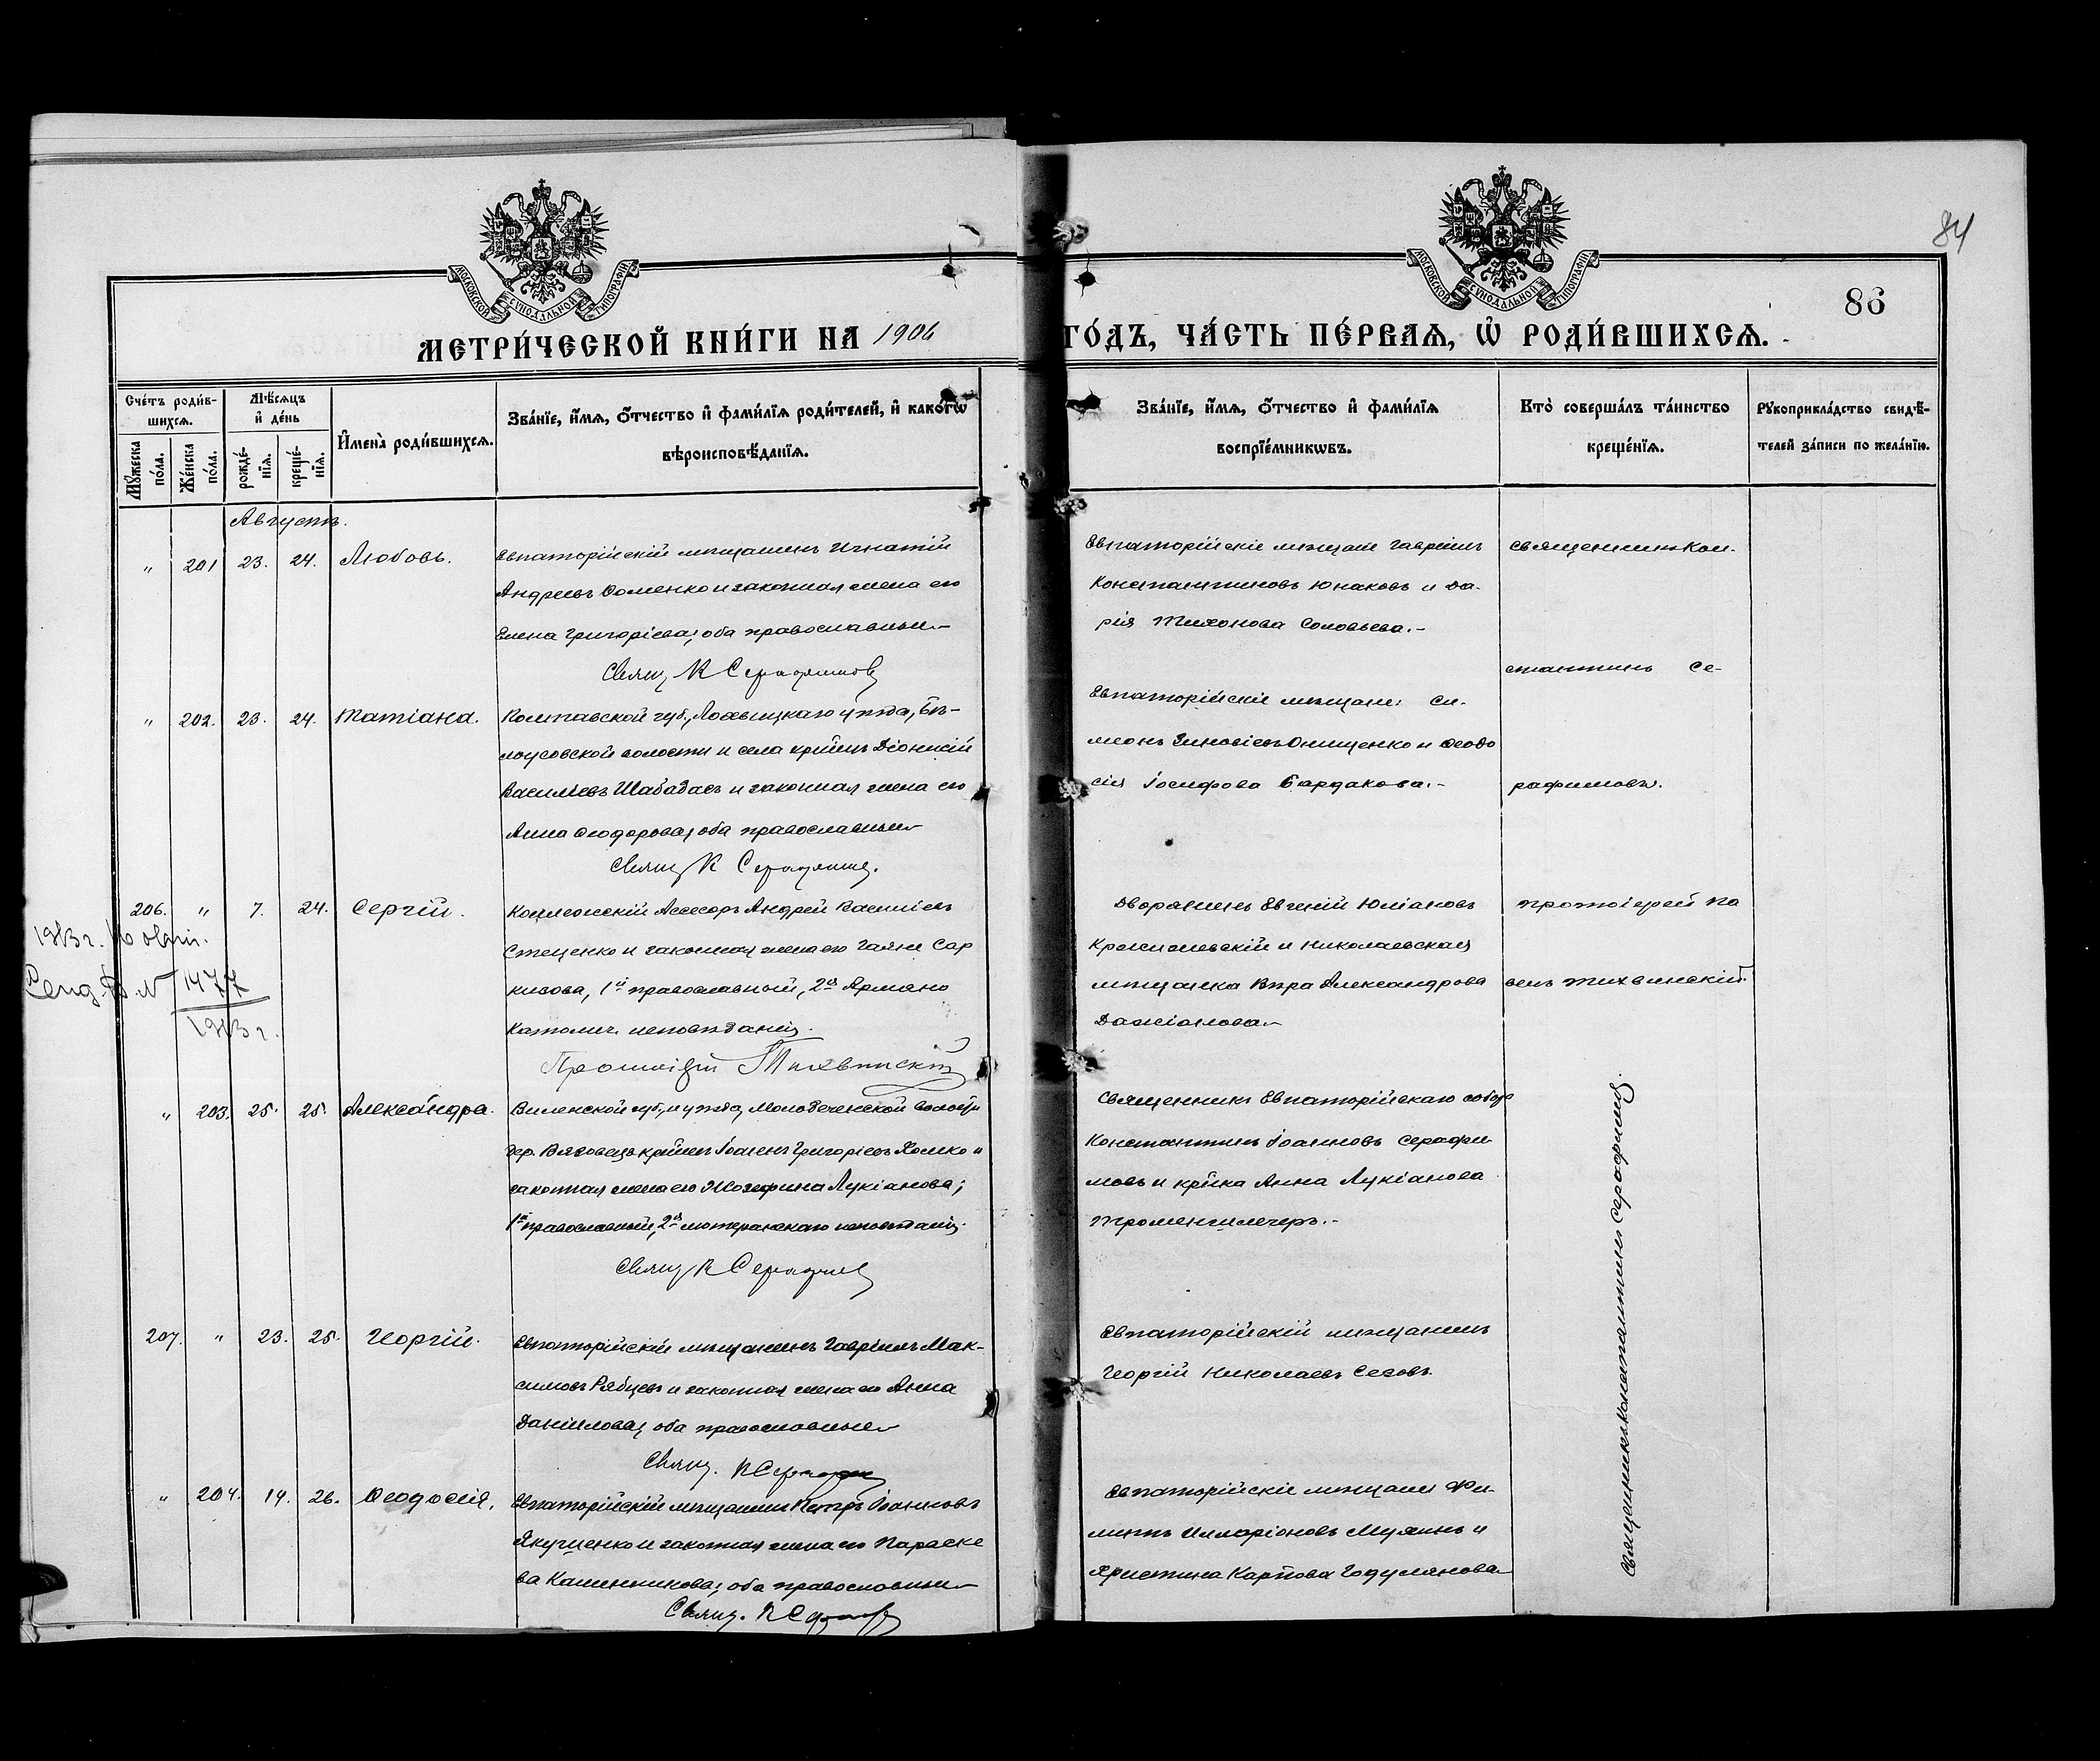 84
86
МОСКОВСКОЙ СѴНОДАЛЬНОЙ ТИПОГРАФІИ
МОСКОВСКОЙ СѴНОДАЛЬНОЙ ТИПОГРАФІИ
МЕТРИ́ЧЕСКОЙ КНИ́ГИ НА 1906 ГО́ДЪ, ЧА́СТЬ ПЕ́РВАѦ, Ѡ҆ РОДИ́ВШИХСѦ.
Сче́тъ роди́в-
шихсѧ.
Мѣ́сѧцъ
и҆ де́нь
Мꙋ́жеска
по́ла.
Же́нска
по́ла.
рожде́-
нїѧ.
креще́-
нїѧ.
И҆мена̀ роди́вшихсѧ.
Зва́нїе, и҆́мѧ, ѻ҆́тчество и҆ фами́лїѧ роди́телей, и҆ како́гѡ
вѣроисповѣ́данїѧ.
Зва́нїе, и҆́мѧ, ѻ҆́тчество и҆ фами́лїѧ
воспрїе́мникѡвъ.
Кто̀ соверша́лъ та́инство
креще́нїѧ.
Рꙋкоприкла́дство свидѣ́-
телей за́писи по жела́нїю.
Августъ.
" 201 23. 24. Любовь.
Евпаторійскій мѣщанинъ Игнатій
Андреевъ Фоменко и законная жена его
Елена Григоріева; оба православные
Свящ. К Серафимовъ
Евпаторійскіе мѣщане Гавріилъ
Константиновъ Юнаковъ и Да-
рія Тихонова Соловьева.-
священникъ Кон-
стантинъ Се-
рафимовъ.
" 202. 23. 24. Татіана.
Полтавской губ., Лохвицкаго уѣзда, Бѣ-
лоусовской волости и села крестьянинъ Діонисій
Васильевъ Шабадасъ и законная жена его
Анна Ѳеодорова; оба православные
Свящ К Серафимов.
Евпаторійскіе мѣщане: Си-
меонъ Зиновіевъ Онищенко и Ѳеодо
сія Іосифова Бардакова.-
206. " 7. 24. Сергій.
Коллежскій Ассесоръ Андрей Васильевъ
Стеценко и законная жена его Гаяне Сар
кизова, 1й православный, 2я Армяно
католич. исповѣданія.
Протоіерей Тихвинскій
Дворянинъ Евгеній Юліановъ
и Николаевская
мѣщанка Вѣра Александрова
протоіерей Па
велъ Тихвинскій.
1913 г.
№ 1477
1913 г.
" 203. 25. 25. Александра.
Виленской губ. и уѣзда, Молодеченской волости
дер. крнинъ Іоаннъ Григоріевъ Хомко и
законная жена его Жозефина Лукіанова;
1й православный, 2я лютеранскаго исповѣданія.
Свящ К Серафимов
Священникъ Евпаторійскаго собора
Константинъ Іоанновъ Серафи-
мовъ и крнка Анна Лукіанова
Священникъ Константинъ Серафимовъ.
207. " 23. 25. Георгій.
Евпаторійскій мѣщанинъ Гавріилъ Мак-
симовъ Рябцевъ и законная жена его Анна
Даніилова; оба православные
Свящ. К Серафимов
Евпаторійскій мѣщанинъ
Георгій Николаевъ
" 204. 14. 26. Ѳеодосія.
Евпаторійскій мѣщанинъ Петръ Іоанновъ
Якущенко и законная жена его Параске
ва Калинникова; оба православные
Свящ. К
Евпаторійскіе мѣщане Фи-
липпъ Илларіоновъ Мухинъ и
Христина Карпова